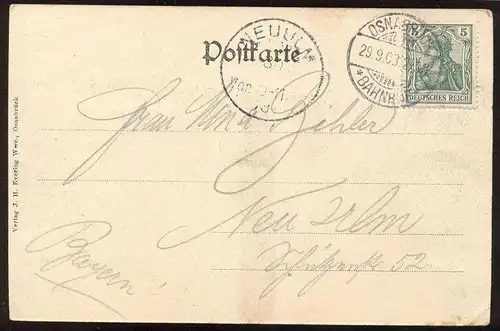 Postkarte
NEUULM
OSNABRÜCK
29.9.03
* BAHNH
5
DEUTSCHES REICH
Frau
Neu Ulm
Schützenstr 52
Bayern
Verlag J. H. Evering Wwe., Osnabrück